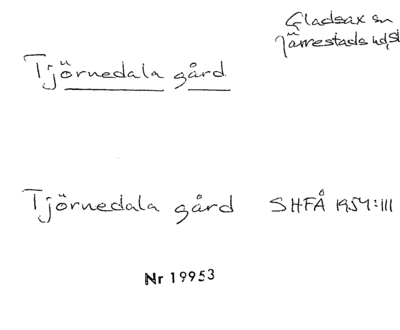 Gladsax sn
Järrestads hd, Sk
Tjörnedala gård
Tjörnedala gård SHFÅ 1954:III
Nr 19953